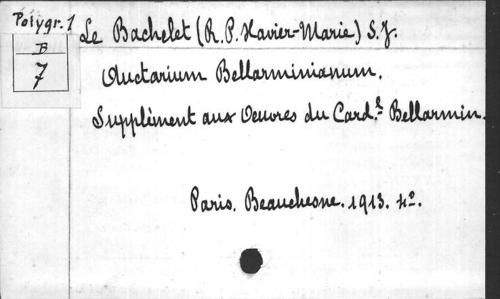 Polygr. 1
B
7
Le Bachelet (R.P. Xavier-Marie) S.J.
Auctarium Bellarminianum.
Supplément aux Oeuvres du Card.l Bellarmin.
Paris. Beauchesne. 1913. 4º.